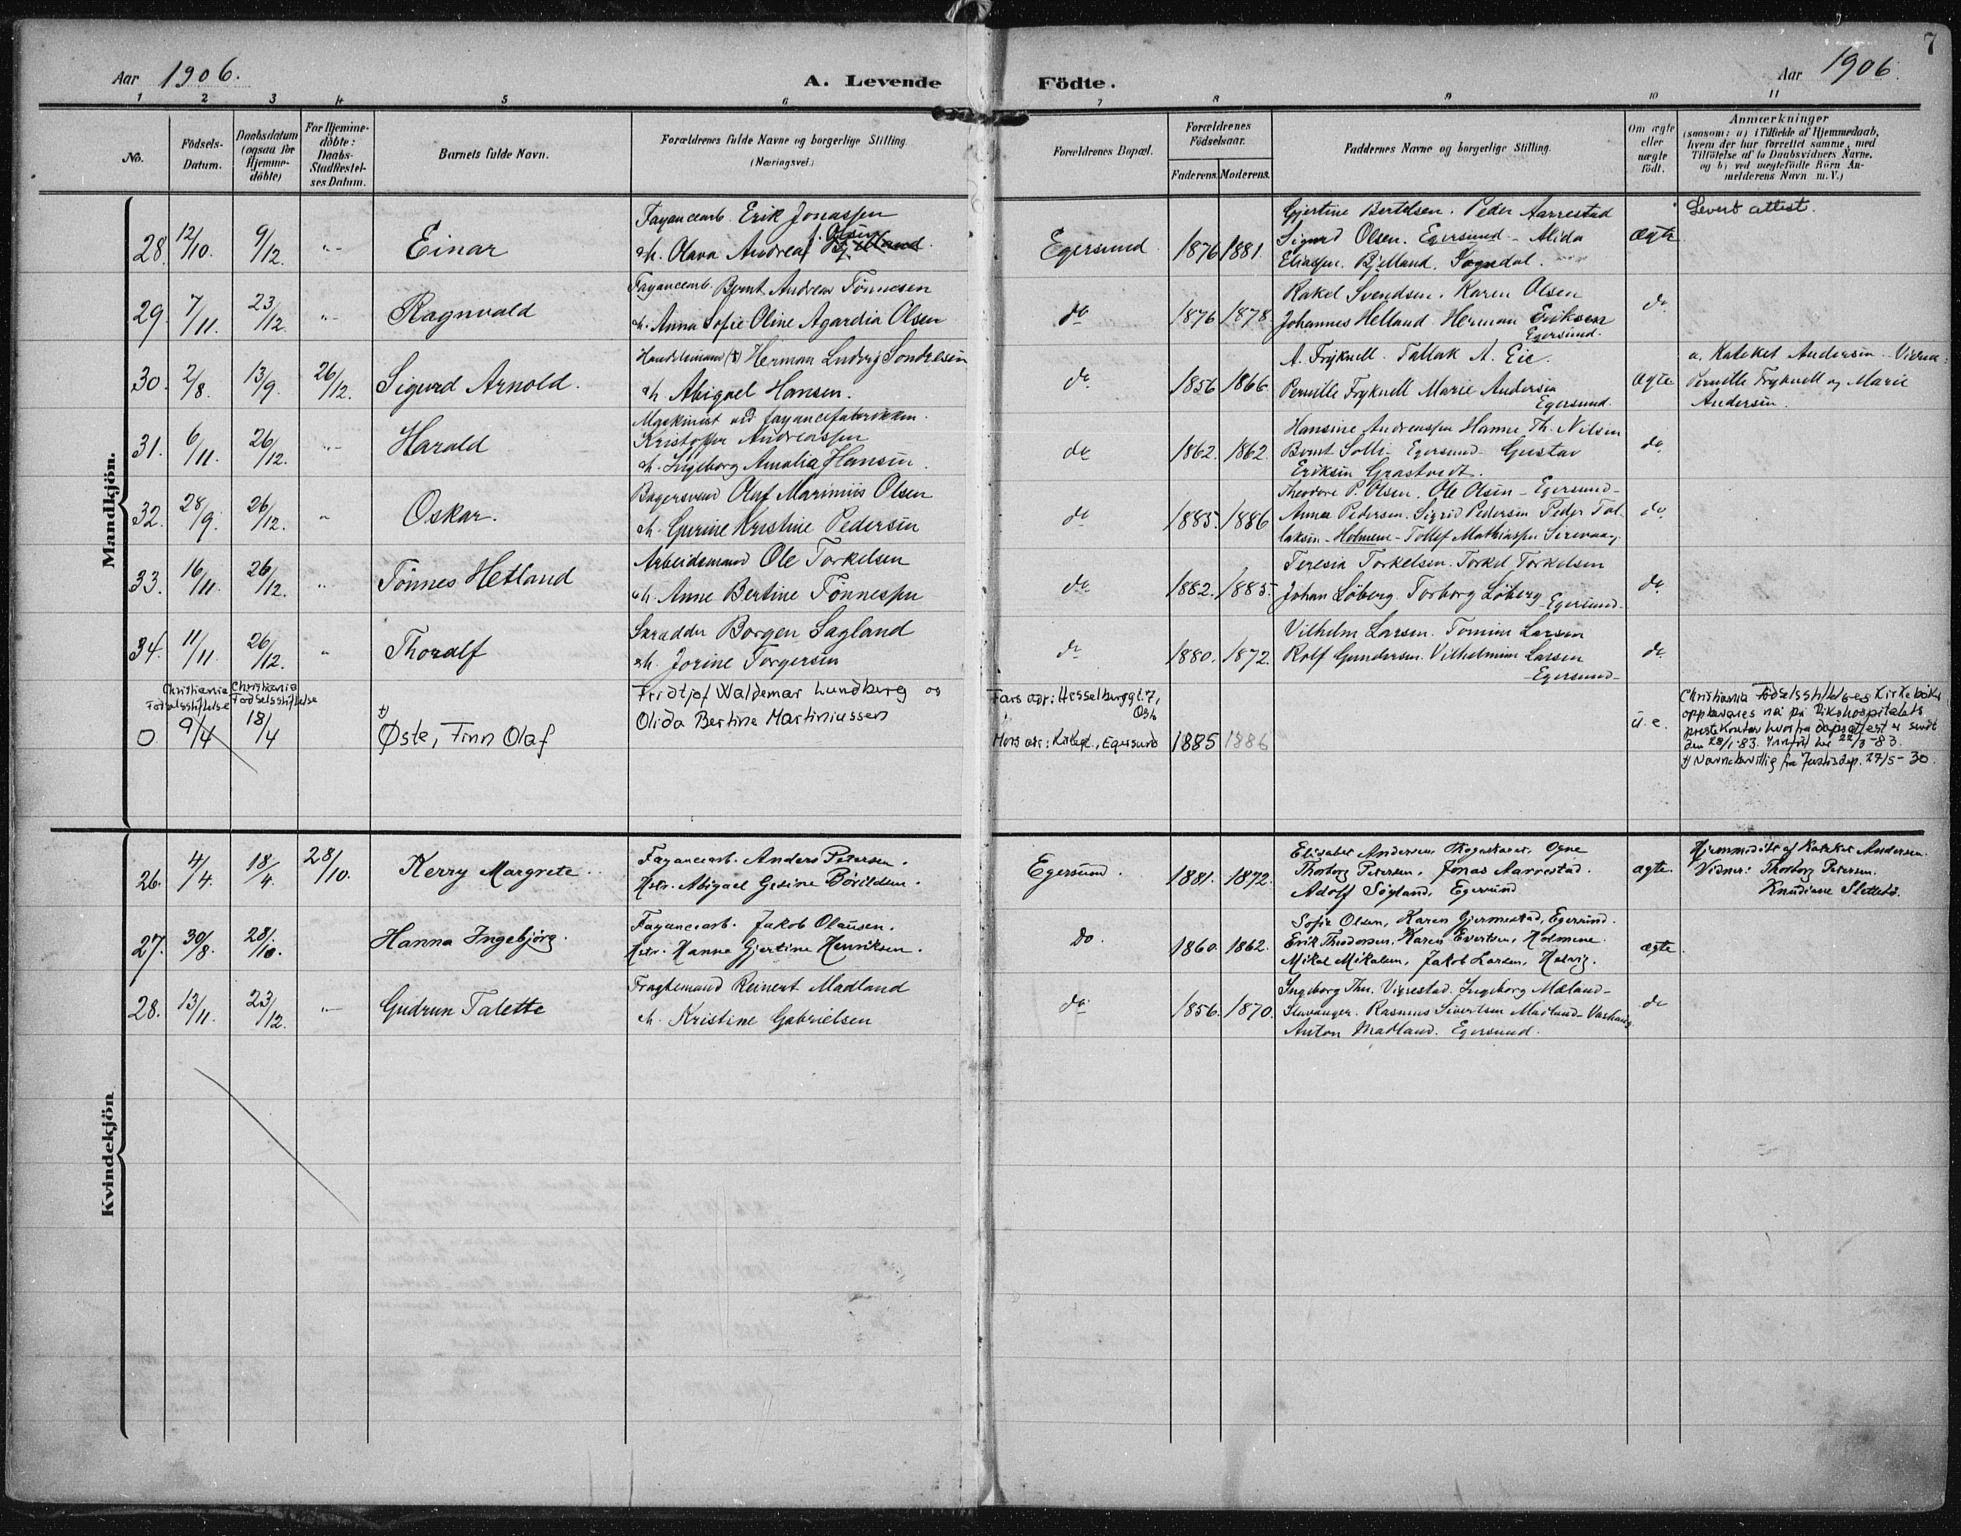 7
Aar 1906.
A. Levende
Födte.
Aar 1906.
1 2 3 4 5 6 7 8 9 10 11
No.
Födsels-Datum.
Daabsdatum (ogsaa for Hjemme-döbte)
For Hjemme-döbte: Daabs-Stadfæstel-ses Datum.
Barnets fulde Navn.
Forældrenes fulde Navne og borgerlige Stilling. (Næringsvei.)
Forældrenes Bopæl.
Forældrenes Födselsaar.
Faderens. Moderens.
Faddernes Navne og borgerlige Stilling.
Om ægte eller uægte födt.
Anmærkninger
(saasom: a) i Tilfælde af Hjemmedaab,
hvem der har forrettet samme, med
Tilföielse af to Daabsvidners Navne.
og b) ved uægtefödte Börn An-
melderens Navn m. V.)
Mandkjön.
28. 12/10. 9/12. -"- Einar
Fayancearb. Erik Jonassen
h. Olava Andrea f. Olsen Bjelland.
Egersund. 1876 1881.
Gjertine Bertelsen. Peder Aarrestad
Sigurd Olsen. Egersund - Alida
Eliassen. Bjelland. Sogndal.
ægte
Levert attest.
29. 7/11. 23/12. -"- Ragnvald
Fayancearb. Bernt Andreas Tønnesen
h. Anna Sofie Oline Agardia Olsen
do 1876 1878.
Rakel Svendsen. Karen Olsen
Johannes Helland. Herman Eriksen
Egersund.
do
30. 2/8. 13/9. 26/12. Sigurd Arnold.
Handelsmand Herman Ludvig Sondresen
h. Abigael Hansen.
do 1856 1866.
A. Fryknell. Tallak A. Eie.
Pernille Fryknell Marie Andersen
Egersund.
ægte
a. Kateket Andersen
Pernille Fryknell og Marie
Andersen.
31. 6/11. 26/12. -"- Harald
Maskinist ved fayancefabrikken.
Kristoffer Andreassen
h. Ingeborg Amalia Hansen.
do 1862. 1862.
Hansine Andreassen Hanne Th. Nilsen
Bernt Solli - Egersund - Gustav
Eriksen Grastvedt.
do.
32. 28/9. 26/12. " Oskar.
Bagersvend Oluf Marinius Olsen
h. Gurine Kristine Pedersen
do 1885. 1886
Theodore P. Olsen. Ole Olsen - Egersund -
Anna Pedersen. Sigrid Pedersen Peder Tol-
laksen - Holmene - Tollef Mathiassen Sirevaag.
do.
33. 16/11. 26/12. " Tønnes Hetland
Arbeidsmand Ole Torkelsen
h. Anne Bertine Tønnessen
do. 1882. 1885.
Teresia Torkelsen. Torkel Torkelsen
Johan Løberg. Torborg Løberg
- Egersund -
do.
34. 11/11. 26/12. " Thoralf
Skrædder Borgen Sagland
h. Jorine Torgersen
do 1880. 1872.
Vilhelm Larsen. Tomine Larsen
Rolf Gundersen. Vilhelmine Larsen
- Egersund -
do.
Christiania Fødselsstiftelse Christiania Fødselsstiftelse
0 9/4 18/4 1) Øste, Finn Olaf
Fridtjof Waldemar Lundberg og
Olida Bertine Martiniussen
Fars adr: Hesselberggt. 7,
Oslo
Mors adr: Kirkegt., Egersund 1885 1886
u.e.
Christiania Fødselsstiftelses kirkebøker
oppbevares nå på Rikshospitalets
prestekontor hvorfra dåpsattest er sendt
den 28/1-83. Innført her 22/3-83.
1) Navnebevillig fra Justisdep. 27/5-30.
Kvindekjön
26. 4/4. 18/4. 28/10. Kerry Margrete.
Fayancearb. Anders Petersen.
Hstr. Abigael Gesine Børildsen.
Egersund. 1881. 1872.
Elisabet Andersen, Ogne
Thorborg Petersen, Jonas Aarrestad.
Adolf Søgland, Egersund
ægte.
Hjemmedøbt af Kateket Andersen.
Vidner: Thorborg Petersen.
Knudiane Slettebø.
27. 30/8. 28/10. Hanna Ingebjørg.
Fayancearb. Jakob Olausen.
Hstr. Hanne Gjertine Henriksen.
Do. 1860. 1862.
Sofie Olsen, Karen Gjermestad, Egersund.
Erik Theodorsen, Karen Evertsen, Holmene.
Mikal Mikalsen, Jakob Larsen,
ægte
28. 13/11. 23/12. -"- Gudrun Talette
Fragtemand Reinert Madland
h. Kristine Gabrielsen
do. 1856. 1870.
Ingeborg Thn. Vigrestad. Ingeborg Mæland -
Stavanger. Rasmus Sivertsen Madland - Varhaug
Anton Madland. Egersund.
do